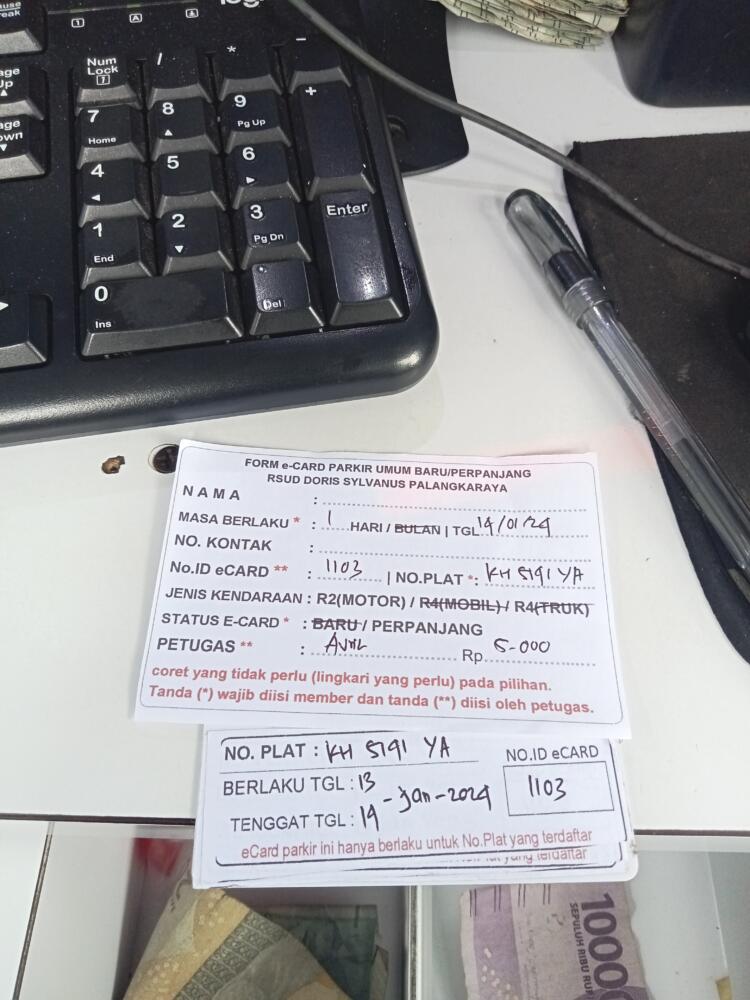 ause
reak
1
A
logi
age
Up
age
own
Num
Lock
7
/
*
-
7
Home
8
9
Pg Up
+
4
5
6
1
End
2
3
Pg Dn
Enter
0
Ins
.
Del
FORM e-CARD PARKIR UMUM BARU/PERPANJANG
RSUD DORIS SYLVANUS PALANGKARAYA
NAMA :
MASA BERLAKU * : 1 HARI / BULAN | TGL 14/01/24
NO. KONTAK :
No.ID eCARD ** : 1103 | NO.PLAT *: KH 5191 YA
JENIS KENDARAAN : R2(MOTOR) / R4(MOBIL) / R4(TRUK)
STATUS E-CARD * : BARU / PERPANJANG
PETUGAS ** : Avril Rp 5-000
coret yang tidak perlu (lingkari yang perlu) pada pilihan.
Tanda (*) wajib diisi member dan tanda (**) diisi oleh petugas.
NO. PLAT : KH 5191 YA
NO.ID eCARD
1103
BERLAKU TGL : 13
TENGGAT TGL : 14 - Jan - 2024
eCard parkir ini hanya berlaku untuk No.Plat yang terdaftar
yang terdaftar
1000
SEPULUH RIBU RU